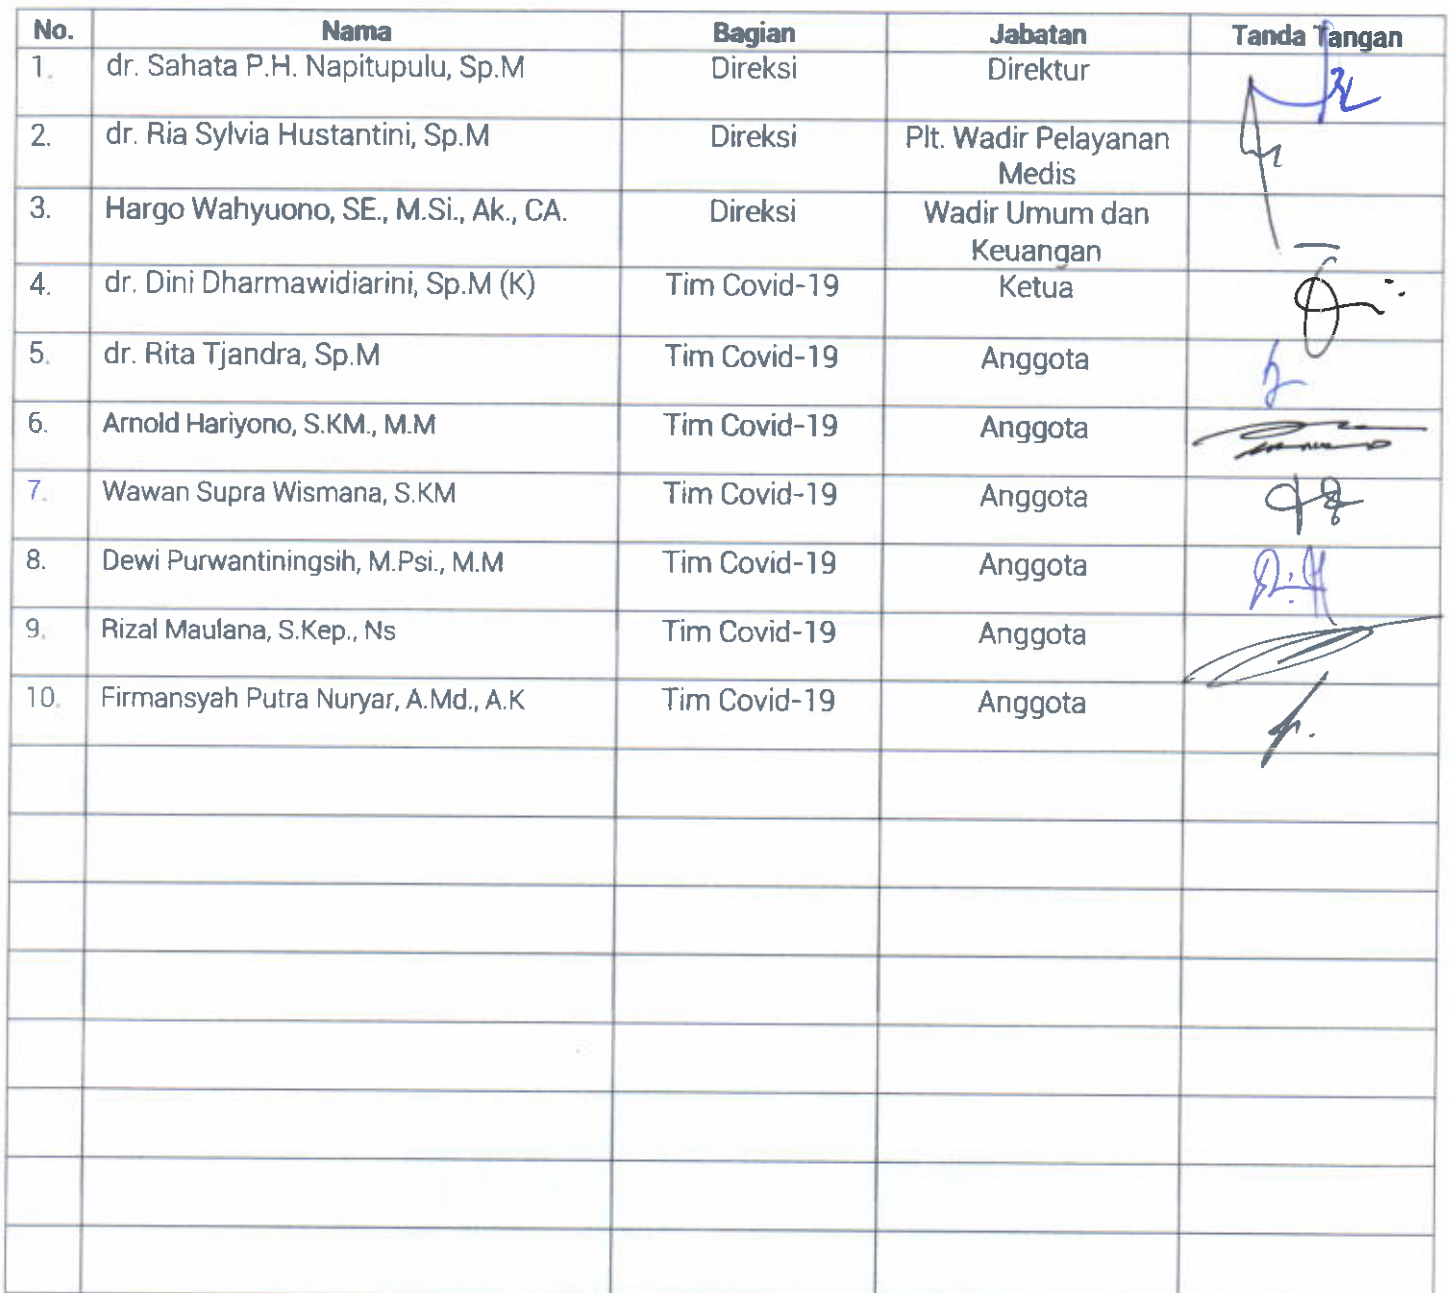 No. Nama Bagian Jabatan Tanda Tangan
1. dr. Sahata P.H. Napitupulu, Sp.M Direksi Direktur
2. dr. Ria Sylvia Hustantini, Sp.M Direksi Plt. Wadir Pelayanan
Medis
3. Hargo Wahyuono, SE., M.Si., Ak., CA. Direksi Wadir Umum dan
Keuangan
4. dr. Dini Dharmawidiarini, Sp.M (K) Tim Covid-19 Ketua
5. dr. Rita Tjandra, Sp.M Tim Covid-19 Anggota
6. Arnold Hariyono, S.KM., M.M Tim Covid-19 Anggota
7. Wawan Supra Wismana, S.KM Tim Covid-19 Anggota
8. Dewi Purwantiningsih, M.Psi., M.M Tim Covid-19 Anggota
9. Rizal Maulana, S.Kep., Ns Tim Covid-19 Anggota
10. Firmansyah Putra Nuryar, A.Md., A.K Tim Covid-19 Anggota